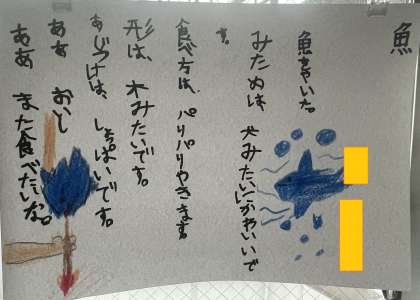 魚
魚をやいた。
みためは、犬みたいでかわいいで
す。
食べ方は、パリパリやきます。
形は、木みたいです。
あじつけは、しょっぱいです。
ああ おいし
ああ また食べたいな。